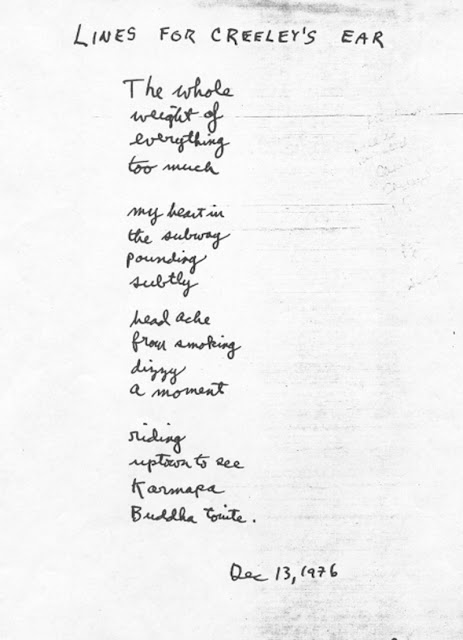 LINES FOR CREELEY'S EAR
The whole
weight of
everything
too much
my heart in
the subway
pounding
subtly
head ache
from smoking
dizzy
a moment
riding
uptown to see
Karmapa
Buddha tonite.
Dec 13, 1976